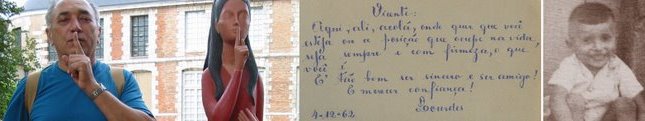 Vicente:
Aqui, ali, acolá, onde quer que você
esteja ou a posição que ocupe na vida,
seja sempre e com firmeza, o que
você é.
É tão bem ser sincero e ser amigo!
E merecer confiança!
Lourdes
4-12-62